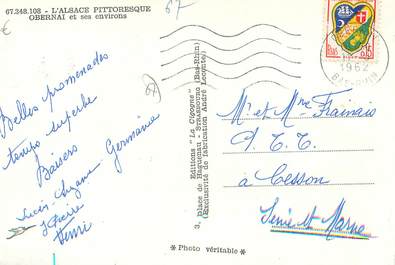 67.248.108 - L'ALSACE PITTORESQUE
OBERNAI et ses environs
67
Belles promenades
temps superbe
Baisers
Lucien Suzanne Germaine
Pierre
Henri
Editions "La Cigogne"
3, place de Haguenau - STRASBOURG (Bas-Rhin)
(Exclusivité de fabrication André Leconte)
* Photo véritable *
1962
BAS-RHIN
Mr et Mme Frainais
P.T.T.
à Cesson
Seine et Marne